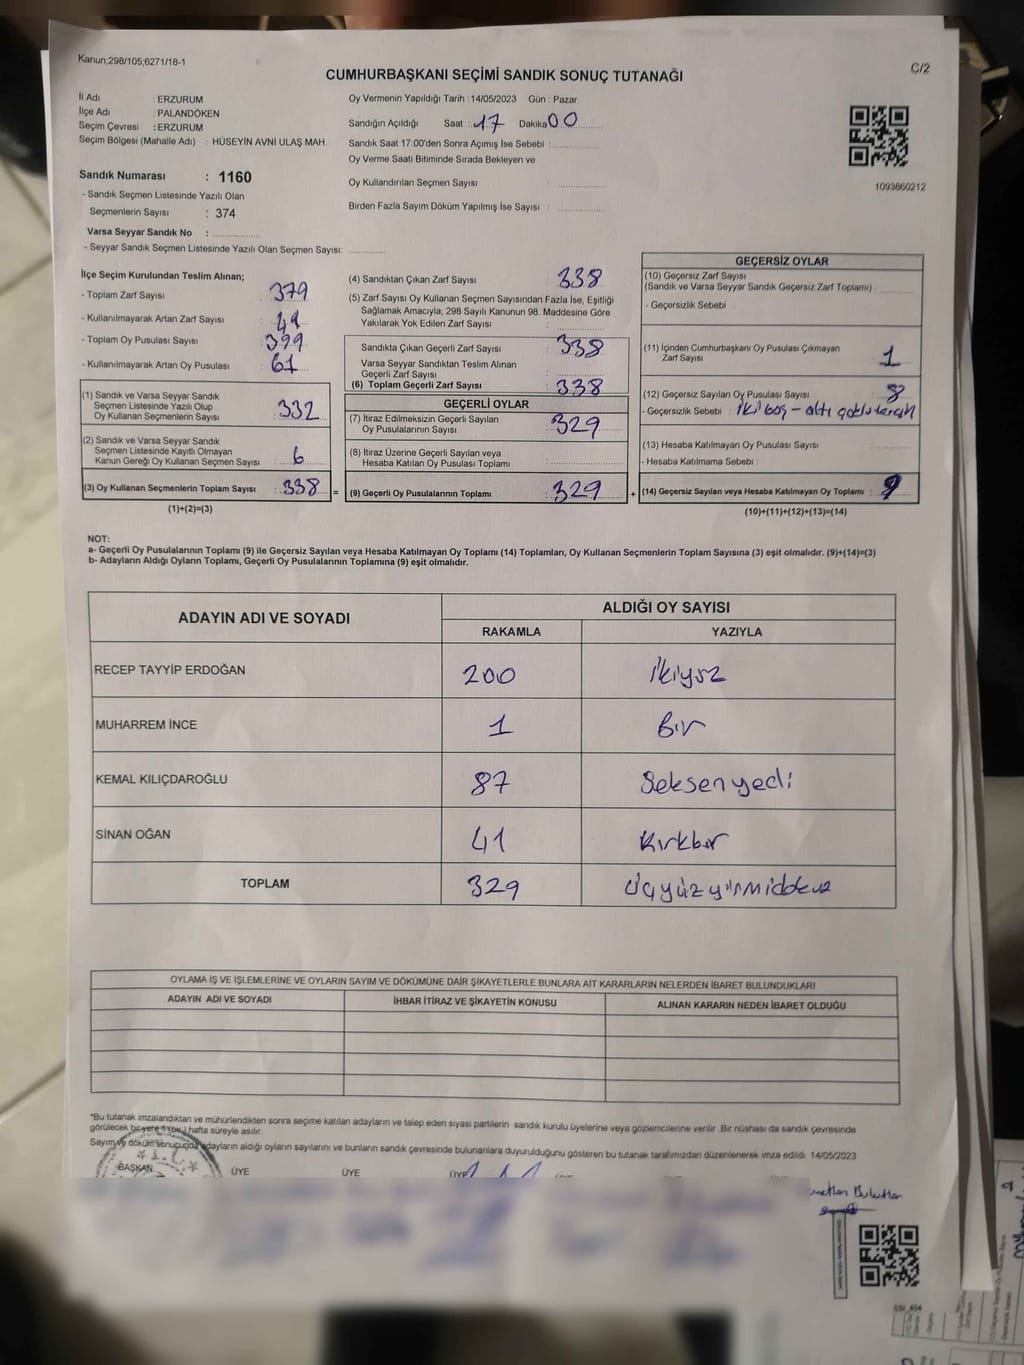 Kanun;298/105;6271/18-1
C/2
CUMHURBAŞKANI SEÇİMİ SANDIK SONUÇ TUTANAĞI
İl Adı : ERZURUM
İlçe Adı : PALANDÖKEN
Seçim Çevresi : ERZURUM
Seçim Bölgesi (Mahalle Adı) : HÜSEYİN AVNİ ULAŞ MAH.
Sandık Numarası : 1160
- Sandık Seçmen Listesinde Yazılı Olan
Seçmenlerin Sayısı : 374
Varsa Seyyar Sandık No :
- Seyyar Sandık Seçmen Listesinde Yazılı Olan Seçmen Sayısı:
Oy Vermenin Yapıldığı Tarih : 14/05/2023 Gün : Pazar
Sandığın Açıldığı Saat : 17 Dakika 00
Sandık Saat 17:00'den Sonra Açımış İse Sebebi :
Oy Verme Saati Bitiminde Sırada Bekleyen ve
Oy Kullandırılan Seçmen Sayısı :
Birden Fazla Sayım Döküm Yapılmış İse Sayısı :
1093860212
İlçe Seçim Kurulundan Teslim Alınan;
- Toplam Zarf Sayısı : 379
- Kullanılmayarak Artan Zarf Sayısı : 41
- Toplam Oy Pusulası Sayısı : 399
- Kullanılmayarak Artan Oy Pusulası : 61
(1) Sandık ve Varsa Seyyar Sandık
Seçmen Listesinde Yazılı Olup
Oy Kullanan Seçmenlerin Sayısı : 332
(2) Sandık ve Varsa Seyyar Sandık
Seçmen Listesinde Kayıtlı Olmayan
Kanun Gereği Oy Kullanan Seçmen Sayısı : 6
(3) Oy Kullanan Seçmenlerin Toplam Sayısı : 338 =
(1)+(2)=(3)
(4) Sandıktan Çıkan Zarf Sayısı : 338
(5) Zarf Sayısı Oy Kullanan Seçmen Sayısından Fazla İse, Eşitliği
Sağlamak Amacıyla; 298 Sayılı Kanunun 98. Maddesine Göre
Yakılarak Yok Edilen Zarf Sayısı :
Sandıkta Çıkan Geçerli Zarf Sayısı : 338
Varsa Seyyar Sandıktan Teslim Alınan
Geçerli Zarf Sayısı :
(6) Toplam Geçerli Zarf Sayısı : 338
GEÇERLİ OYLAR
(7) İtiraz Edilmeksizin Geçerli Sayılan
Oy Pusulalarının Sayısı : 329
(8) İtiraz Üzerine Geçerli Sayılan veya
Hesaba Katılan Oy Pusulası Toplamı :
(9) Geçerli Oy Pusulalarının Toplamı : 329 +
GEÇERSİZ OYLAR
(10) Geçersiz Zarf Sayısı
(Sandık ve Varsa Seyyar Sandık Geçersiz Zarf Toplamı) :
- Geçersizlik Sebebi :
(11) İçinden Cumhurbaşkanı Oy Pusulası Çıkmayan
Zarf Sayısı : 1
(12) Geçersiz Sayılan Oy Pusulası Sayısı : 8
- Geçersizlik Sebebi : iki boş - altı
(13) Hesaba Katılmayan Oy Pusulası Sayısı
- Hesaba Katılmama Sebebi :
(14) Geçersiz Sayılan veya Hesaba Katılmayan Oy Toplamı : 9
(10)+(11)+(12)+(13)=(14)
NOT:
a- Geçerli Oy Pusulalarının Toplamı (9) ile Geçersiz Sayılan veya Hesaba Katılmayan Oy Toplamı (14) Toplamları, Oy Kullanan Seçmenlerin Toplam Sayısına (3) eşit olmalıdır. (9)+(14)=(3)
b- Adayların Aldığı Oyların Toplamı, Geçerli Oy Pusulalarının Toplamına (9) eşit olmalıdır.
ADAYIN ADI VE SOYADI
ALDIĞI OY SAYISI
RAKAMLA YAZIYLA
RECEP TAYYİP ERDOĞAN 200 İkiyüz
MUHARREM İNCE 1 Bir
KEMAL KILIÇDAROĞLU 87 Seksenyedi
SİNAN OĞAN 41 Kırkbir
TOPLAM 329 Üçyüzyirmidokuz
OYLAMA İŞ VE İŞLEMLERİNE VE OYLARIN SAYIM VE DÖKÜMÜNE DAİR ŞİKAYETLERLE BUNLARA AİT KARARLARIN NELERDEN İBARET BULUNDUKLARI
ADAYIN ADI VE SOYADI İHBAR İTİRAZ VE ŞİKAYETİN KONUSU ALINAN KARARIN NEDEN İBARET OLDUĞU
*Bu tutanak imzalandıktan ve mühürlendikten sonra seçime katılan adayların ve talep eden siyasi partilerin sandık kurulu üyelerine veya gözlemcilerine verilir. Bir nüshası da sandık çevresinde
görülecek bir yere 1 (bir) hafta süreyle asılır.
Sayım ve döküm sonucunda adayların aldığı oyların sayılarını ve bunların sandık çevresinde bulunanlara duyurulduğunu gösteren bu tutanak tarafımızdan düzenlenerek imza edildi. 14/05/2023
BAŞKAN ÜYE ÜYE ÜYE